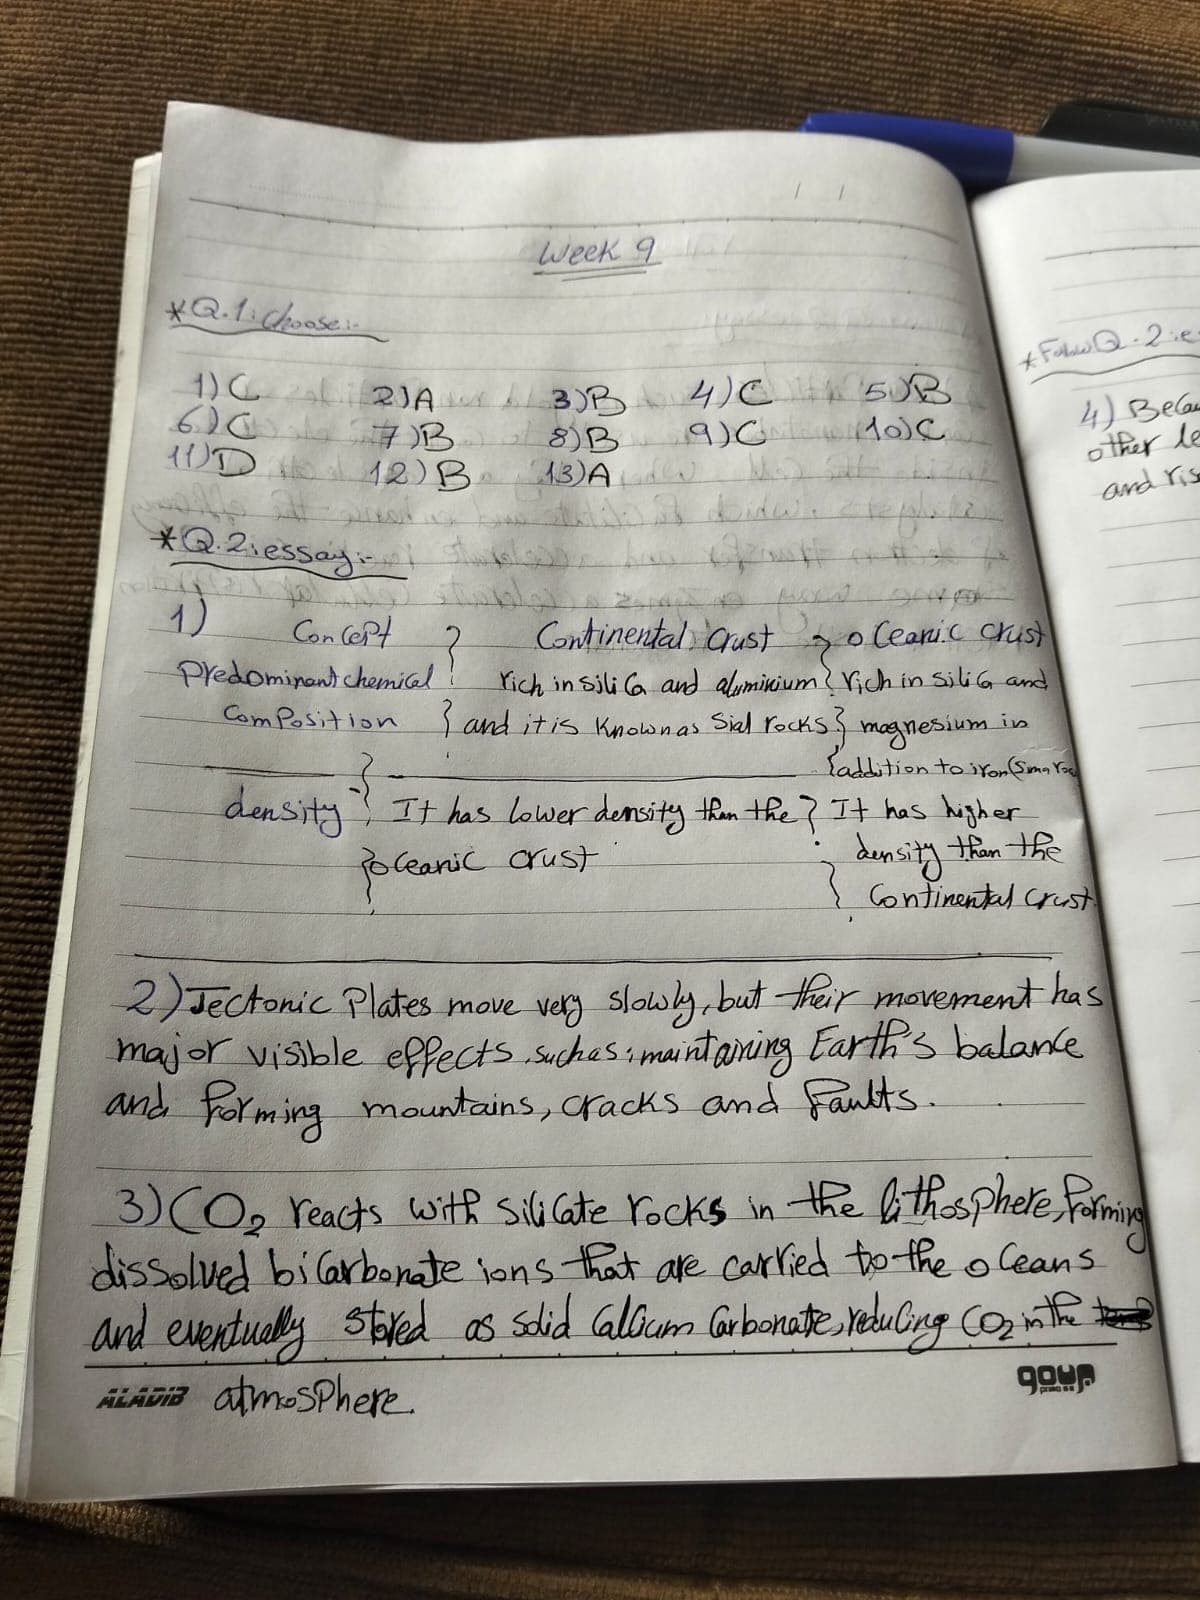 Week 9
*Q.1: choose:-
1)C 2)A 3)B 4)C 5)B
6)C 7)B 8)B 9)C 10)C
11)D 12)B 13)A
*Q.2: essay:-
1) Concept Continental crust oceanic crust
Predominant chemical rich in silica and aluminium rich in silica and
composition and it is known as Sial rocks magnesium in
addition to iron (Sima
density It has lower density than the It has higher
oceanic crust density than the
Continental crust.
2) Tectonic Plates move very slowly, but their movement has
major visible effects, such as: maintaining Earth's balance
and forming mountains, cracks and faults.
3) CO2 reacts with silicate rocks in the lithosphere, forming
dissolved bicarbonate ions that are carried to the oceans
and eventually stored as solid calcium carbonate, reducing CO2 in the
atmosphere.
ALADIB
*Follow Q.2:
4)
other
and